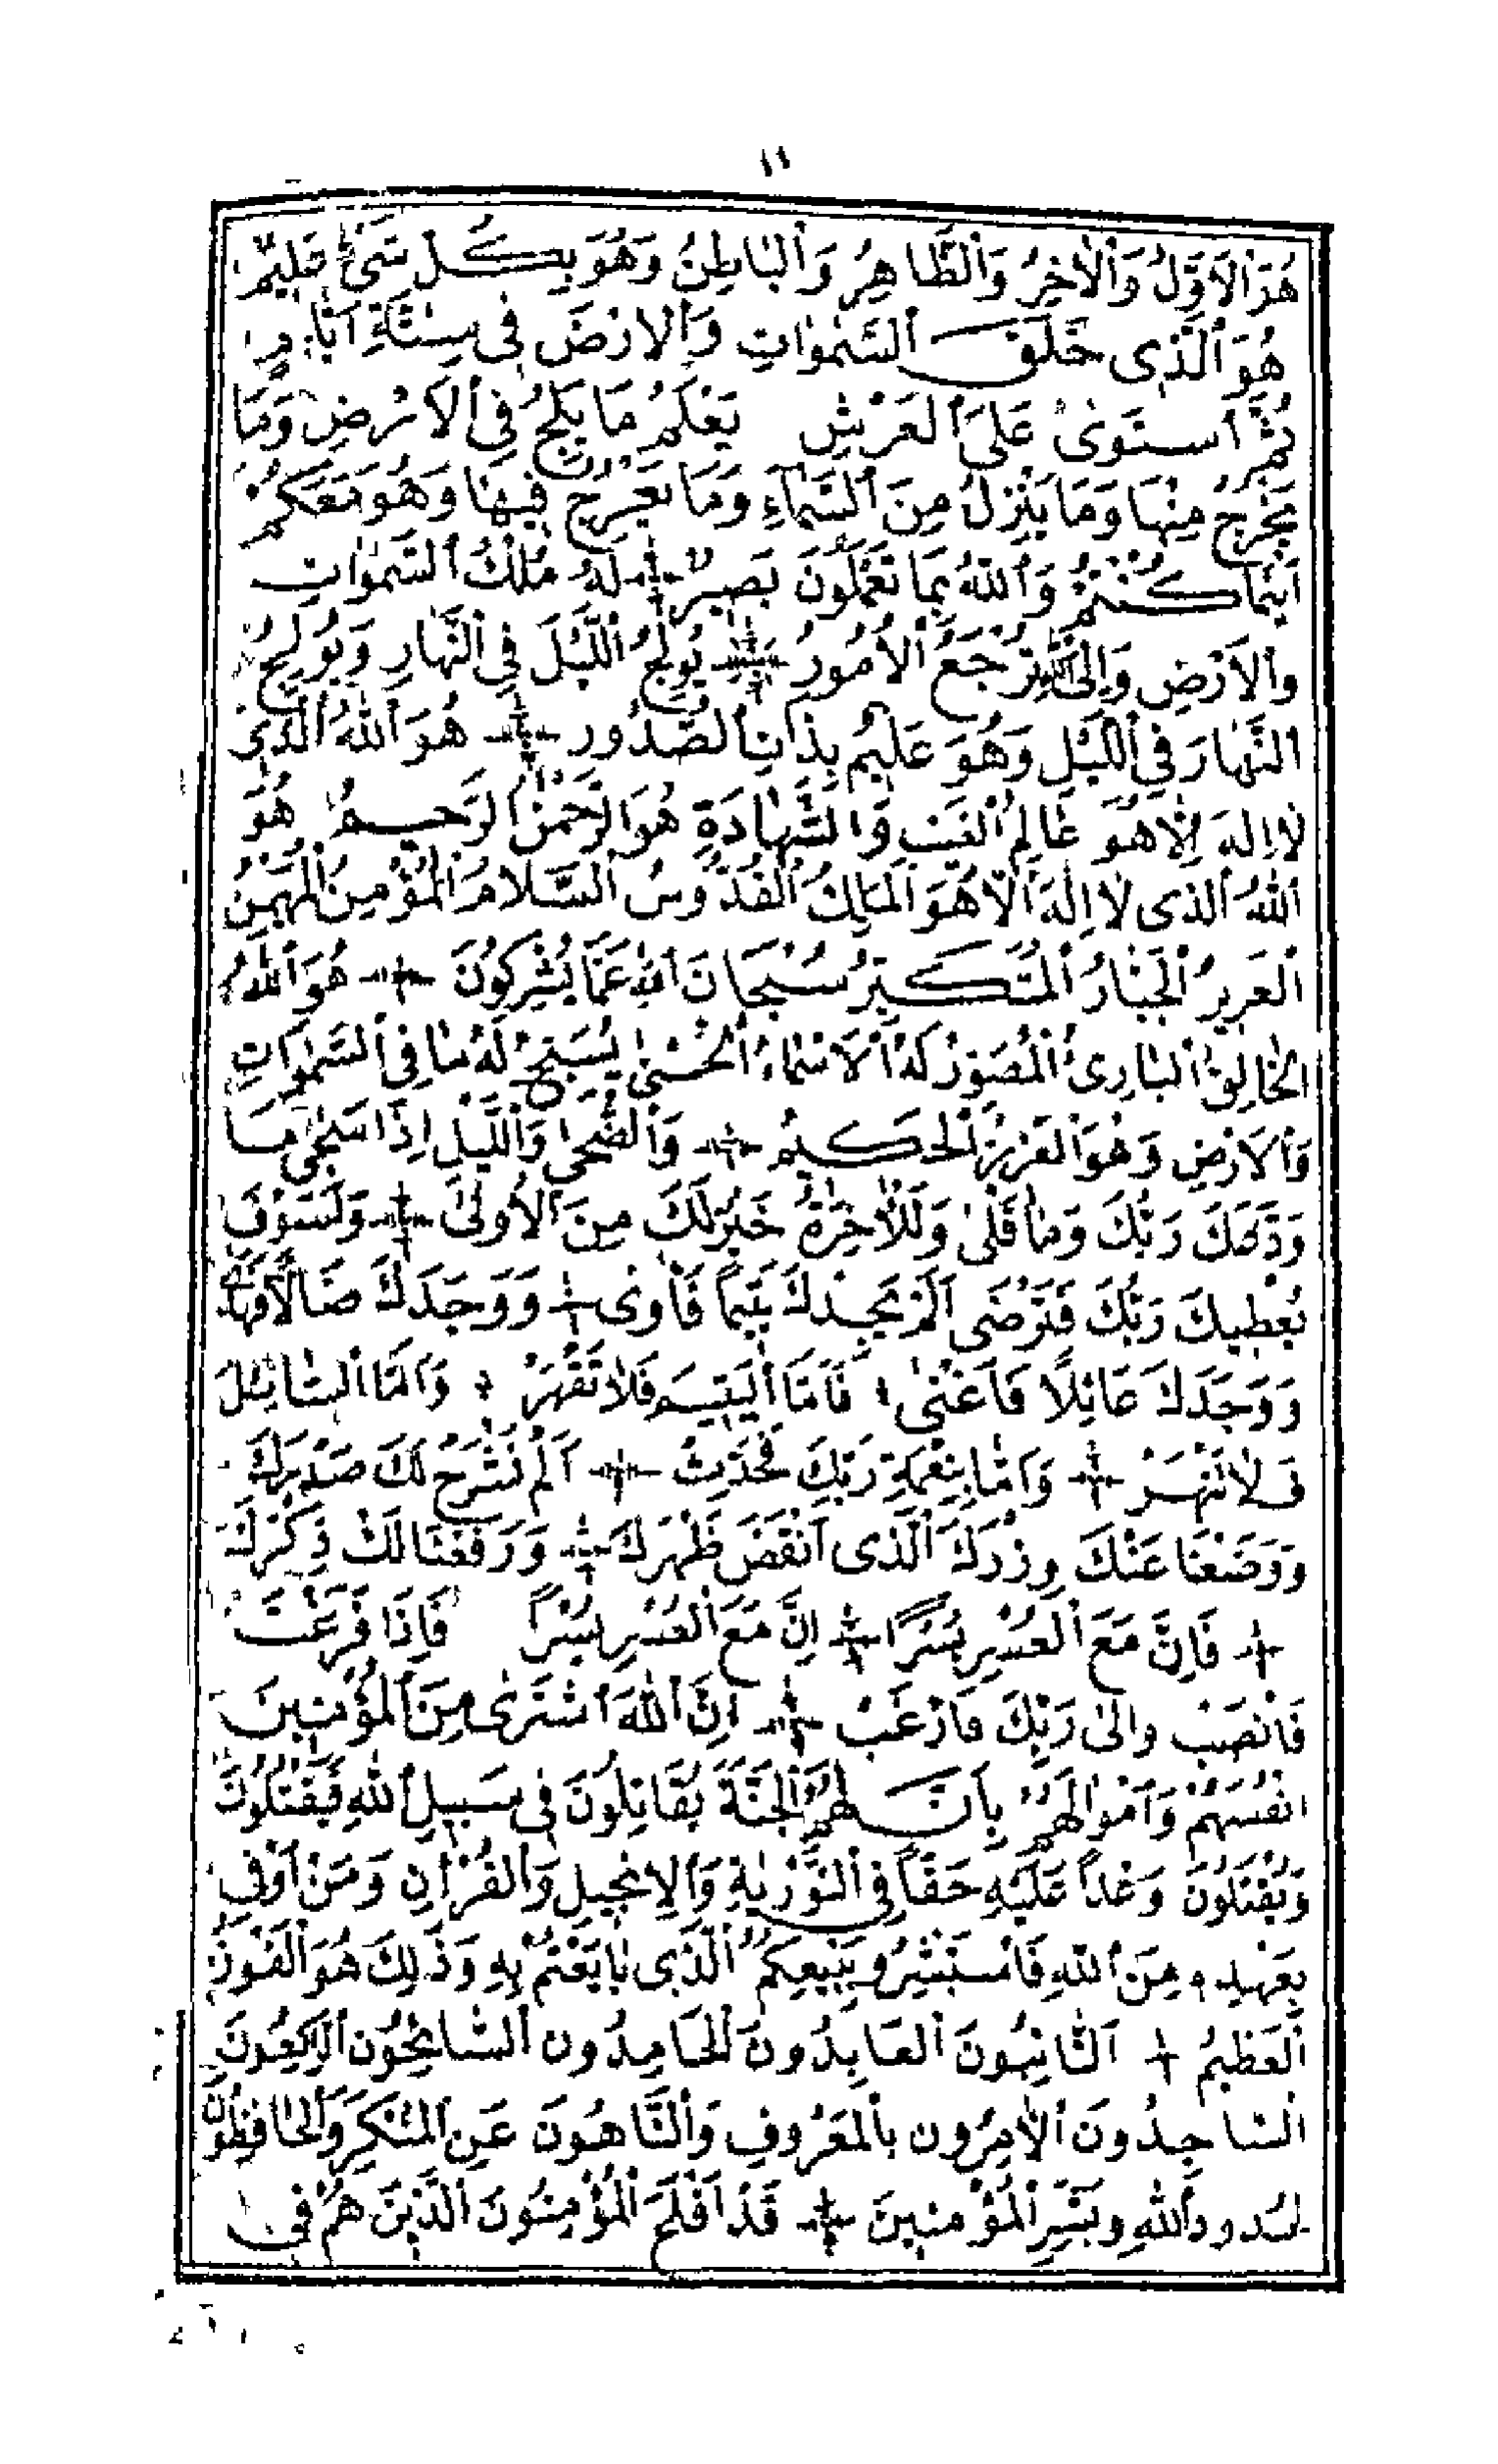 ١١
هُوَ ٱلْاَوَّلُ وَٱلْاٰخِرُ وَٱلظَّاهِرُ وَٱلْبَاطِنُ وَهُوَ بِكُلِّ شَىْءٍ عَلِيمٌ
هُوَ ٱلَّذِى خَلَقَ ٱلسَّمٰوَاتِ وَٱلْاَرْضَ فِى سِتَّةِ اَيَّامٍ
ثُمَّ ٱسْتَوٰى عَلَى ٱلْعَرْشِ يَعْلَمُ مَا يَلِجُ فِى ٱلْاَرْضِ وَمَا
يَخْرُجُ مِنْهَا وَمَا يَنْزِلُ مِنَ ٱلسَّمَاءِ وَمَا يَعْرُجُ فِيهَا وَهُوَ مَعَكُمْ
اَيْنَمَا كُنْتُمْ وَٱللّٰهُ بِمَا تَعْمَلُونَ بَصِيرٌ لَهُ مُلْكُ ٱلسَّمٰوَاتِ
وَٱلْاَرْضِ وَاِلَى ٱللّٰهِ تُرْجَعُ ٱلْاُمُورُ يُولِجُ ٱللَّيْلَ فِى ٱلنَّهَارِ وَيُولِجُ
ٱلنَّهَارَ فِى ٱللَّيْلِ وَهُوَ عَلِيمٌ بِذَاتِ ٱلصُّدُورِ هُوَ ٱللّٰهُ ٱلَّذِى
لَا اِلٰهَ اِلَّا هُوَ عَالِمُ ٱلْغَيْبِ وَٱلشَّهَادَةِ هُوَ ٱلرَّحْمٰنُ ٱلرَّحِيمُ هُوَ
ٱللّٰهُ ٱلَّذِى لَا اِلٰهَ اِلَّا هُوَ ٱلْمَلِكُ ٱلْقُدُّوسُ ٱلسَّلَامُ ٱلْمُؤْمِنُ ٱلْمُهَيْمِنُ
ٱلْعَزِيزُ ٱلْجَبَّارُ ٱلْمُتَكَبِّرُ سُبْحَانَ ٱللّٰهِ عَمَّا يُشْرِكُونَ هُوَ ٱللّٰهُ
ٱلْخَالِقُ ٱلْبَارِئُ ٱلْمُصَوِّرُ لَهُ ٱلْاَسْمَاءُ ٱلْحُسْنٰى يُسَبِّحُ لَهُ مَا فِى ٱلسَّمٰوَاتِ
وَٱلْاَرْضِ وَهُوَ ٱلْعَزِيزُ ٱلْحَكِيمُ وَٱلضُّحٰى وَٱللَّيْلِ اِذَا سَجٰى مَا
وَدَّعَكَ رَبُّكَ وَمَا قَلٰى وَلَلْاٰخِرَةُ خَيْرٌ لَكَ مِنَ ٱلْاُولٰى وَلَسَوْفَ
يُعْطِيكَ رَبُّكَ فَتَرْضٰى اَلَمْ يَجِدْكَ يَتِيمًا فَاٰوٰى وَوَجَدَكَ ضَالًّا فَهَدٰى
وَوَجَدَكَ عَائِلًا فَاَغْنٰى فَاَمَّا ٱلْيَتِيمَ فَلَا تَقْهَرْ وَاَمَّا ٱلسَّائِلَ
فَلَا تَنْهَرْ وَاَمَّا بِنِعْمَةِ رَبِّكَ فَحَدِّثْ اَلَمْ نَشْرَحْ لَكَ صَدْرَكَ
وَوَضَعْنَا عَنْكَ وِزْرَكَ ٱلَّذِى اَنْقَضَ ظَهْرَكَ وَرَفَعْنَا لَكَ ذِكْرَكَ
فَاِنَّ مَعَ ٱلْعُسْرِ يُسْرًا اِنَّ مَعَ ٱلْعُسْرِ يُسْرًا فَاِذَا فَرَغْتَ
فَانْصَبْ وَاِلٰى رَبِّكَ فَارْغَبْ اِنَّ ٱللّٰهَ ٱشْتَرٰى مِنَ ٱلْمُؤْمِنِينَ
اَنْفُسَهُمْ وَاَمْوَالَهُمْ بِاَنَّ لَهُمُ ٱلْجَنَّةَ يُقَاتِلُونَ فِى سَبِيلِ ٱللّٰهِ فَيَقْتُلُونَ
وَيُقْتَلُونَ وَعْدًا عَلَيْهِ حَقًّا فِى ٱلتَّوْرٰيةِ وَٱلْاِنْجِيلِ وَٱلْقُرْاٰنِ وَمَنْ اَوْفٰى
بِعَهْدِهِ مِنَ ٱللّٰهِ فَاسْتَبْشِرُو بِبَيْعِكُمُ ٱلَّذِى بَايَعْتُمْ بِهِ وَذٰلِكَ هُوَ ٱلْفَوْزُ
ٱلْعَظِيمُ اَلتَّائِبُونَ ٱلْعَابِدُونَ ٱلْحَامِدُون ٱلسَّائِحُون ٱلرَّاكِعُونَ
ٱلسَّاجِدُونَ ٱلْاٰمِرُون بِٱلْمَعْرُوفِ وَٱلنَّاهُونَ عَنِ ٱلْمُنْكَرِ وَٱلْحَافِظُونَ
لِحُدُودِ ٱللّٰهِ وَبَشِّرِ ٱلْمُؤْمِنِينَ قَدْ اَفْلَحَ ٱلْمُؤْمِنُونَ ٱلَّذِينَ هُمْ فِى